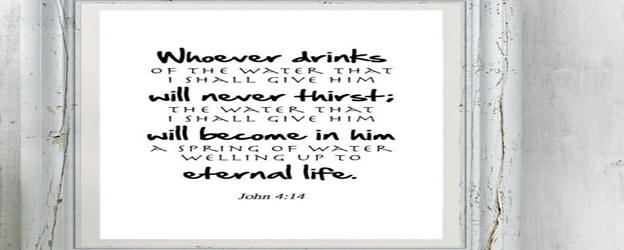 Whoever drinks
OF THE WATER THAT
I SHALL GIVE HIM
will never thirst;
THE WATER THAT
I SHALL GIVE HIM
will become in him
A SPRING OF WATER
WELLING UP TO
eternal life.
John 4:14